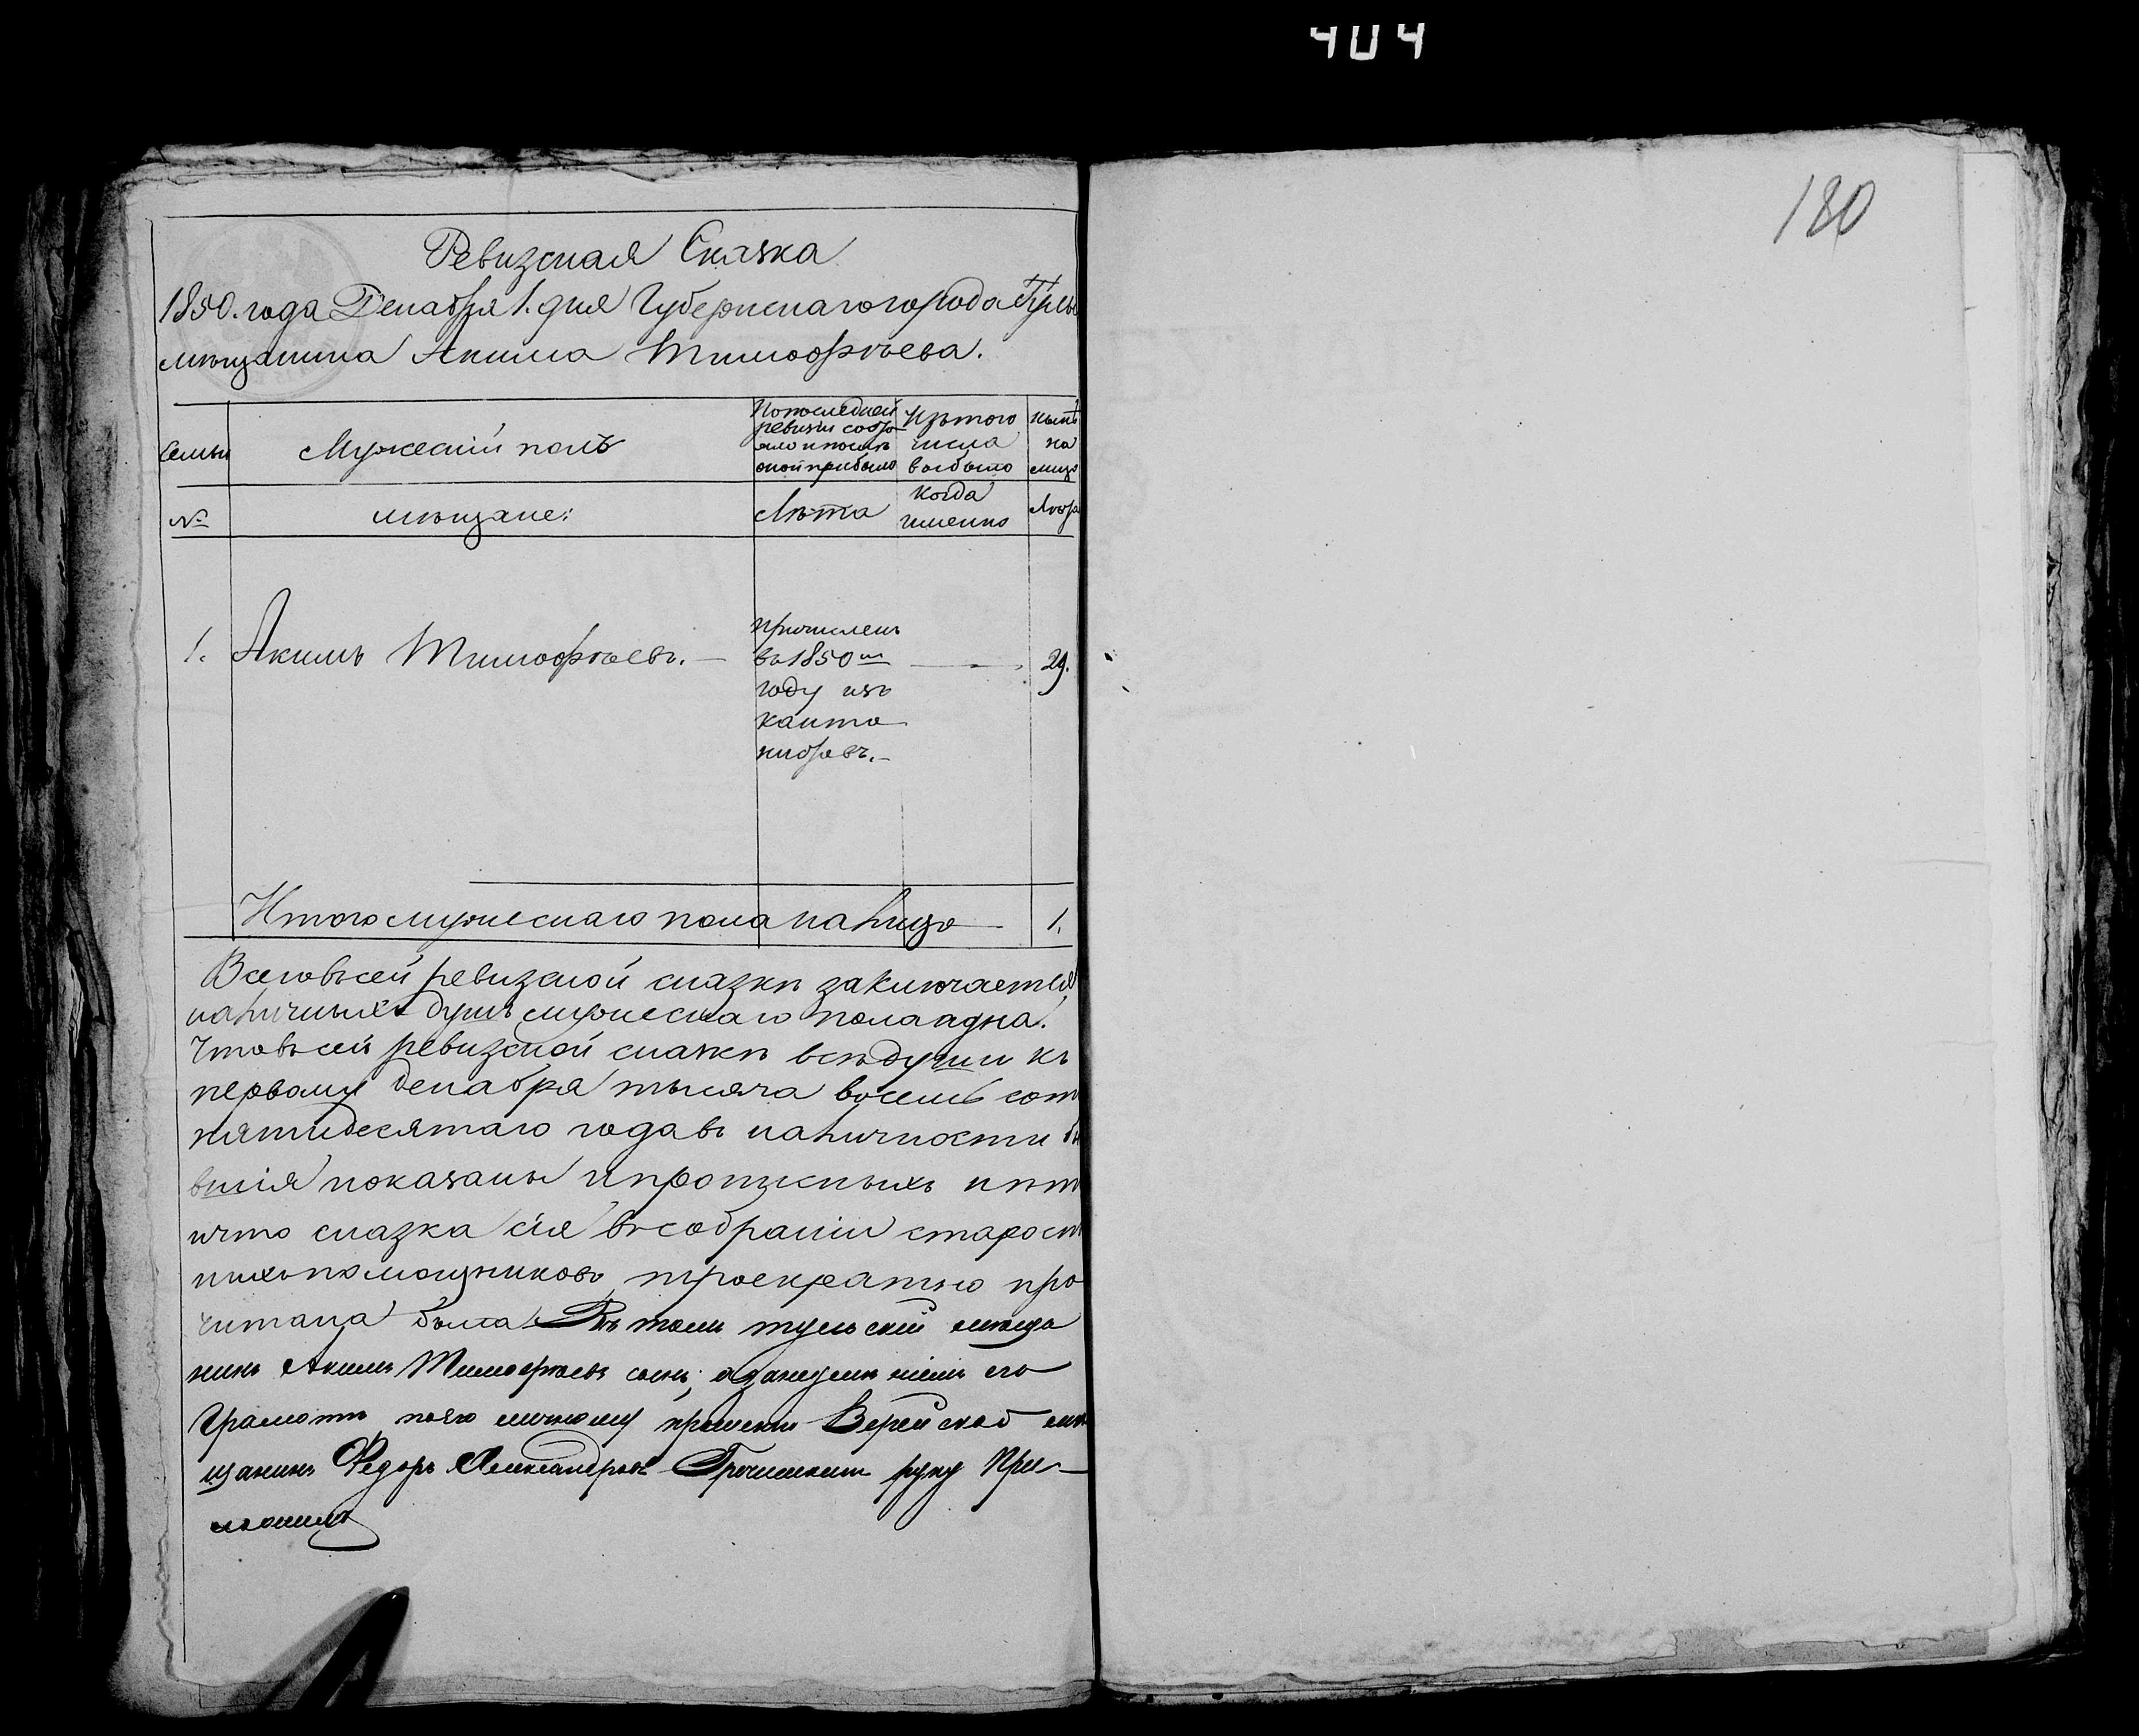 404
180
Ревизская Сказка
1850. года Декабря 1. дня Губернскаго города Тулы
мѣщанина Акима Тимофѣева.
Семьи
Мужескій полъ
По последней
ревизіи состо
яло и послѣ
оной прибыло
Изъ того
числа
выбыло
Нынѣ
на
лицо
№
мѣщане:
Лѣта
когда
именно
Лѣта
1.
Акимъ Тимофѣевъ. —
причисленъ
въ 1850 м
году изъ
канто
нистовъ. —
29.
Итого мужескаго пола на лицо —
1.
Всего въ сей ревизской сказкѣ заключается
наличныхъ душъ мужескаго пола одна.
Что въ сей ревизской сказкѣ всѣ души къ
первому декабря тысяча восемь сот
пятидесятаго года въ наличности бы
вшія показаны и пропускныхъ нѣт
и что сказка сія въ собраніи старост
и ихъ помощниковъ троекратно про
читана была Въ томъ тульскій мѣща
нинъ Акимъ Тимофѣевъ сынъ, а за неумѣніемъ его
Грамотѣ по его личному прошенію Верейской мѣ
щанинъ Федоръ Александровъ руку При-
ложилъ